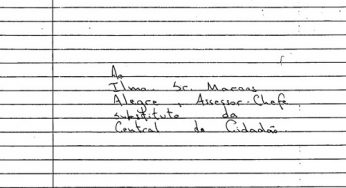 Ao
Ilmo. Sr. Marcos
Alegre, Assessor-Chefe
substituto da
Central do Cidadão.